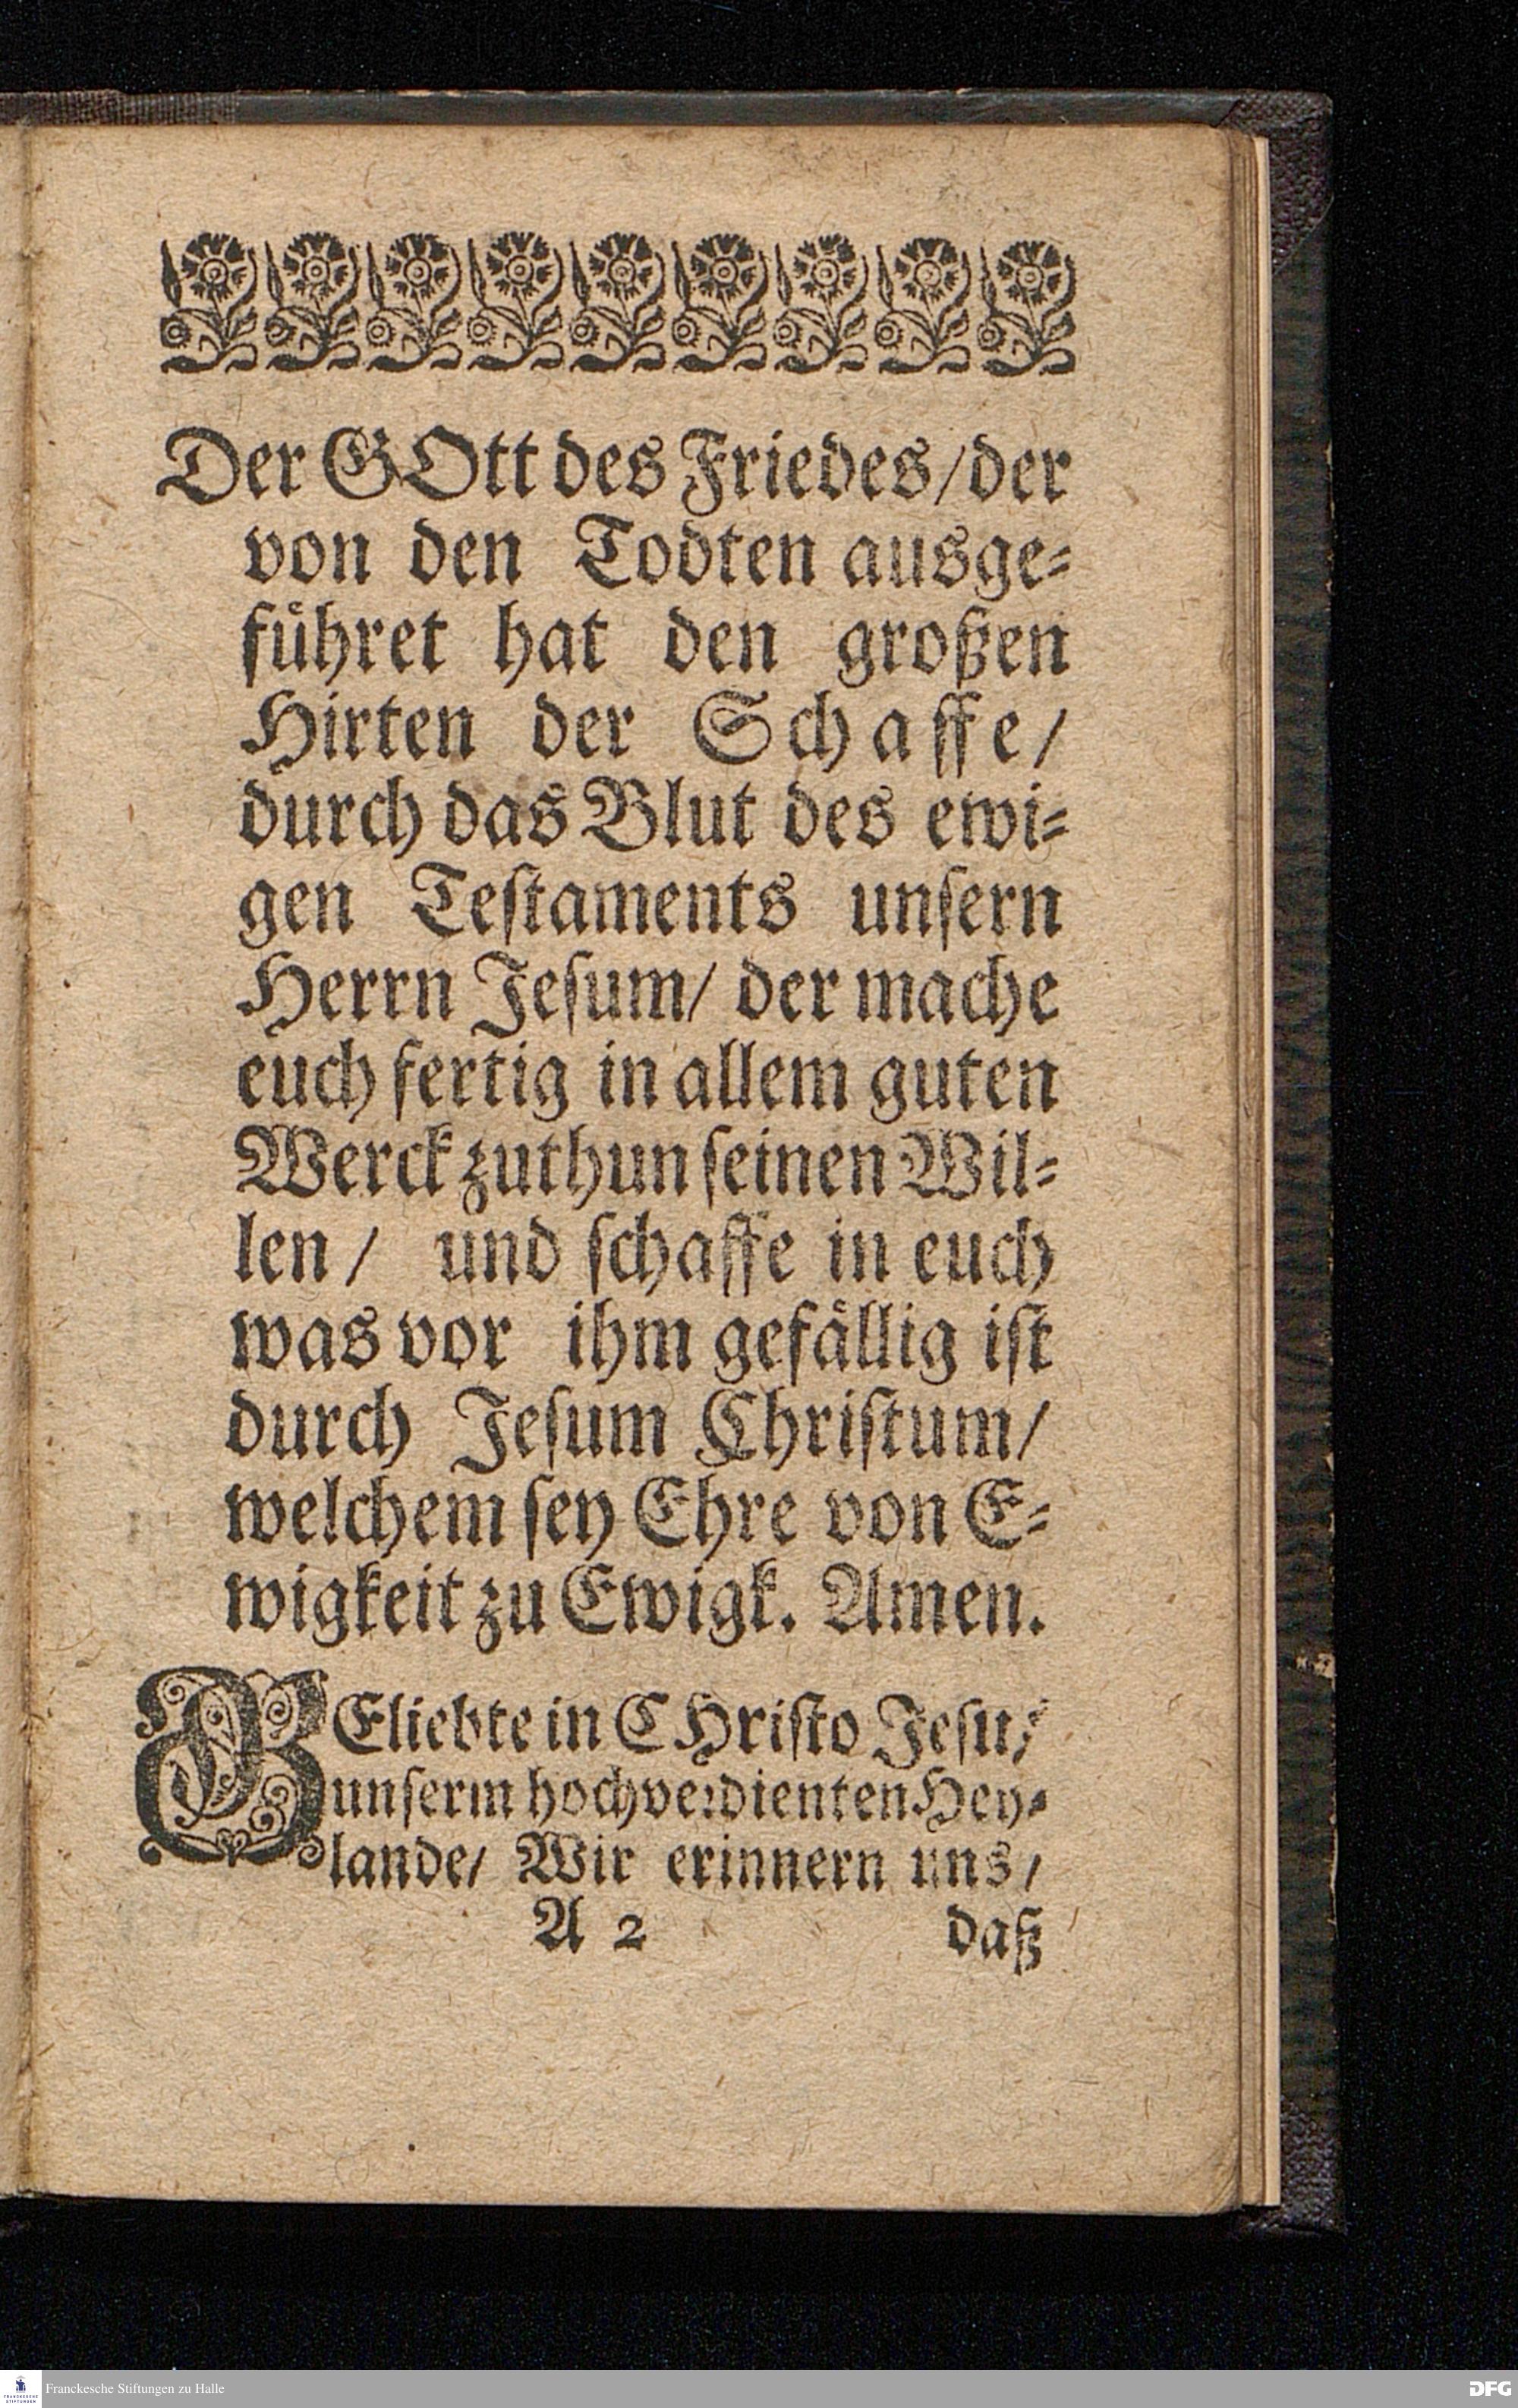 Der GOtt des Friedes/der
von den Todten ausge⸗
fuͤhret hat den großen
Hirten der Schaffe/
durch das Blut des ewi⸗
gen Teſtaments unſern
Herrn Jeſum/ der mache
euch fertig in allem guten
Werck zuthun ſeinen Wil⸗
len/ und ſchaffe in euch
was vor ihm gefaͤllig iſt
durch Jeſum Chriſtum/
welchem ſey Ehre von E⸗
wigkeit zu Ewigk. Amen.
GEliebte in CHriſto Jeſu/
unſerm hochverdienten Hey⸗
lande/ Wir erinnern uns/
A 2 daß
FRANCKESCHE STIFTUNGEN Franckesche Stiftungen zu Halle DFG